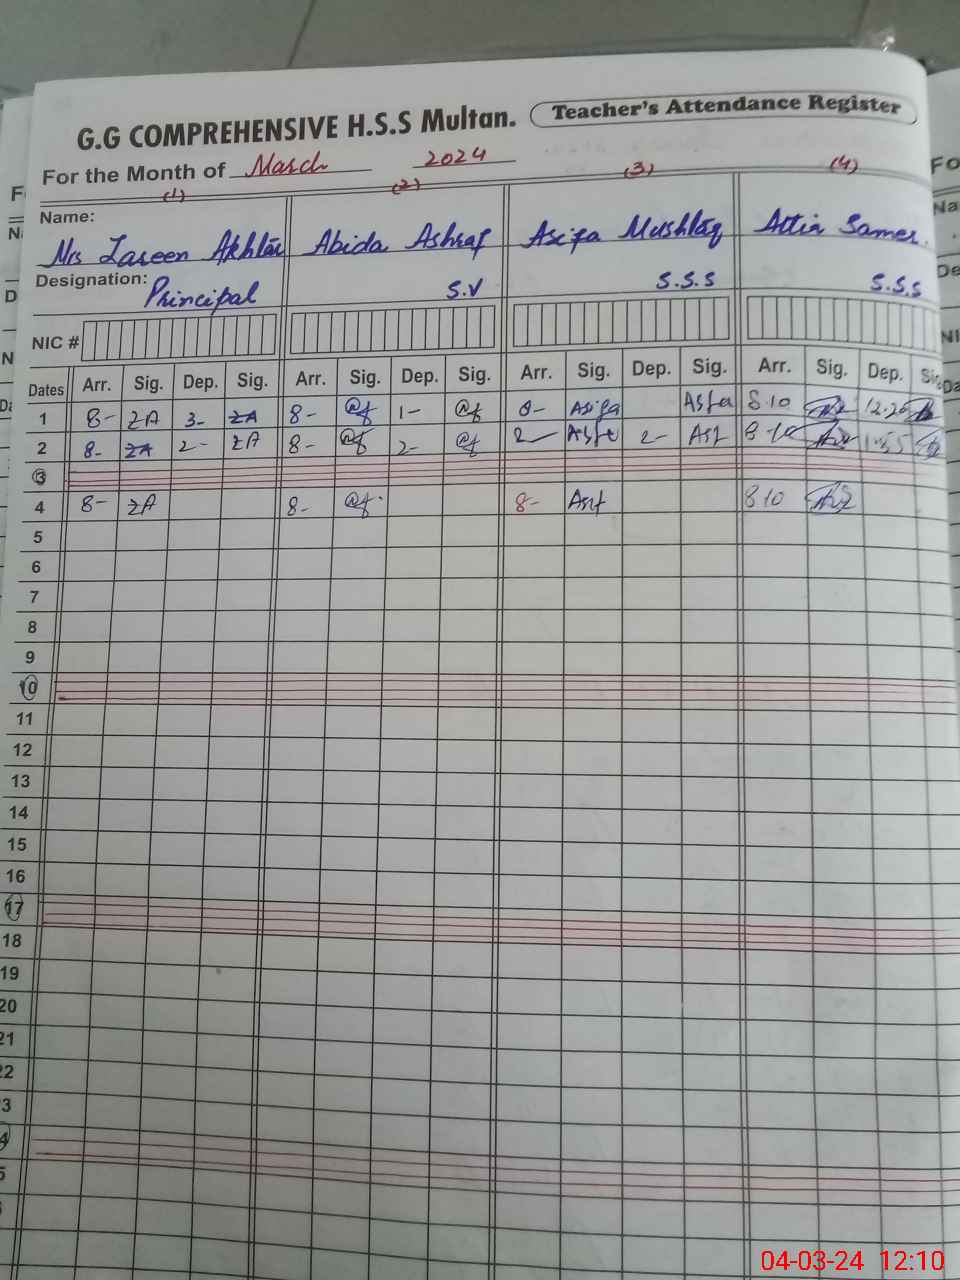 G.G COMPREHENSIVE H.S.S Multan. Teacher's Attendance Register
For the Month of March 2024
(1) (2) (3) (4)
Name:
Mrs Zareen Akhtar Abida Ashraf Asifa Mushtaq
Designation:
Principal S.V S.S.S S.S.S
NIC #
Dates Arr. Sig. Dep. Sig. Arr. Sig. Dep. Sig. Arr. Sig. Dep. Sig. Arr. Sig. Dep. Sig.
1 8- ZA 3- ZA 8- 1- 8- Asifa Asfa 8.10 12.20
2 8- ZA 2- ZA 8- 2- 2- 2- 8-10 1.55
3
4 8- ZA 8- 8- 8 10
5
6
7
8
9
10
11
12
13
14
15
16
17
18
19
20
21
22
04-03-24 12:10